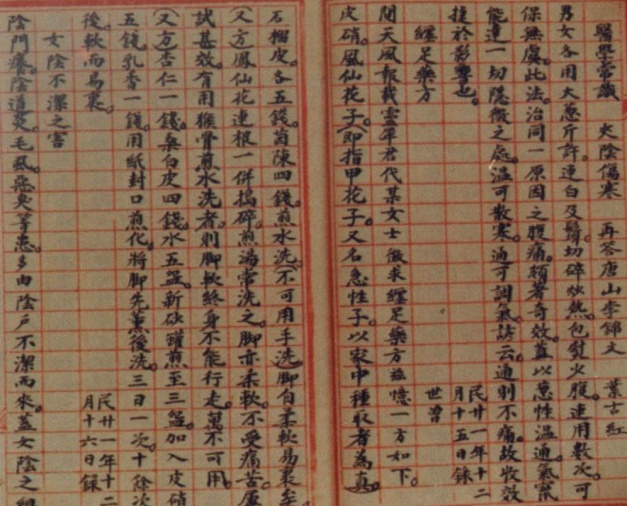 醫學常識　夾陰傷寒　再答唐山李錦文　葉古紅
男女各用大葱斤許連白及鬚切碎炒熱包熨火腹連用數次可
保無虞此法治同一原因之腹痛頗著奇效蓋以葱性溫通氣察
能達一切隱微之處溫可散寒通可調氣諺云通則不痛故收效
捷於影響也　民廿一年十二月十五日錄
纏足藥方　世曾
閱天風報載雲軍君代某女士徵求纏足藥方茲憶一方如下
皮硝鳳仙花子(即指甲花子又名急性子以家中種收者為真
石榴皮各五錢茵陳四錢煎水洗(不可用手洗腳自柔軟易裹
(又方鳳仙花連根一併搗碎煎湯常洗之腳亦柔軟不受痛苦屢
試甚效有用猴骨煎水洗者則腳軟終身不能行走萬不可用
(又方杏仁一錢桑白皮四錢水五盌新砂罐煎至三盌加入皮硝
五錢乳香一錢用紙封口煎化將腳先薰後洗三日一次十餘次
後軟而易裹　民廿一年十二月十六日錄
女陰不潔之害
陰門癢陰道炎毛虱惡臭等患多由陰戶不潔而來蓋女陰之組